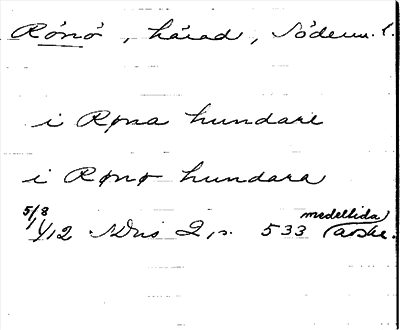 Rönö, härad, Söderm. l.
i Røna hundare
i Rønø hundara
5/8 1412 SDns 2, s. 533 (medeltida avskr.